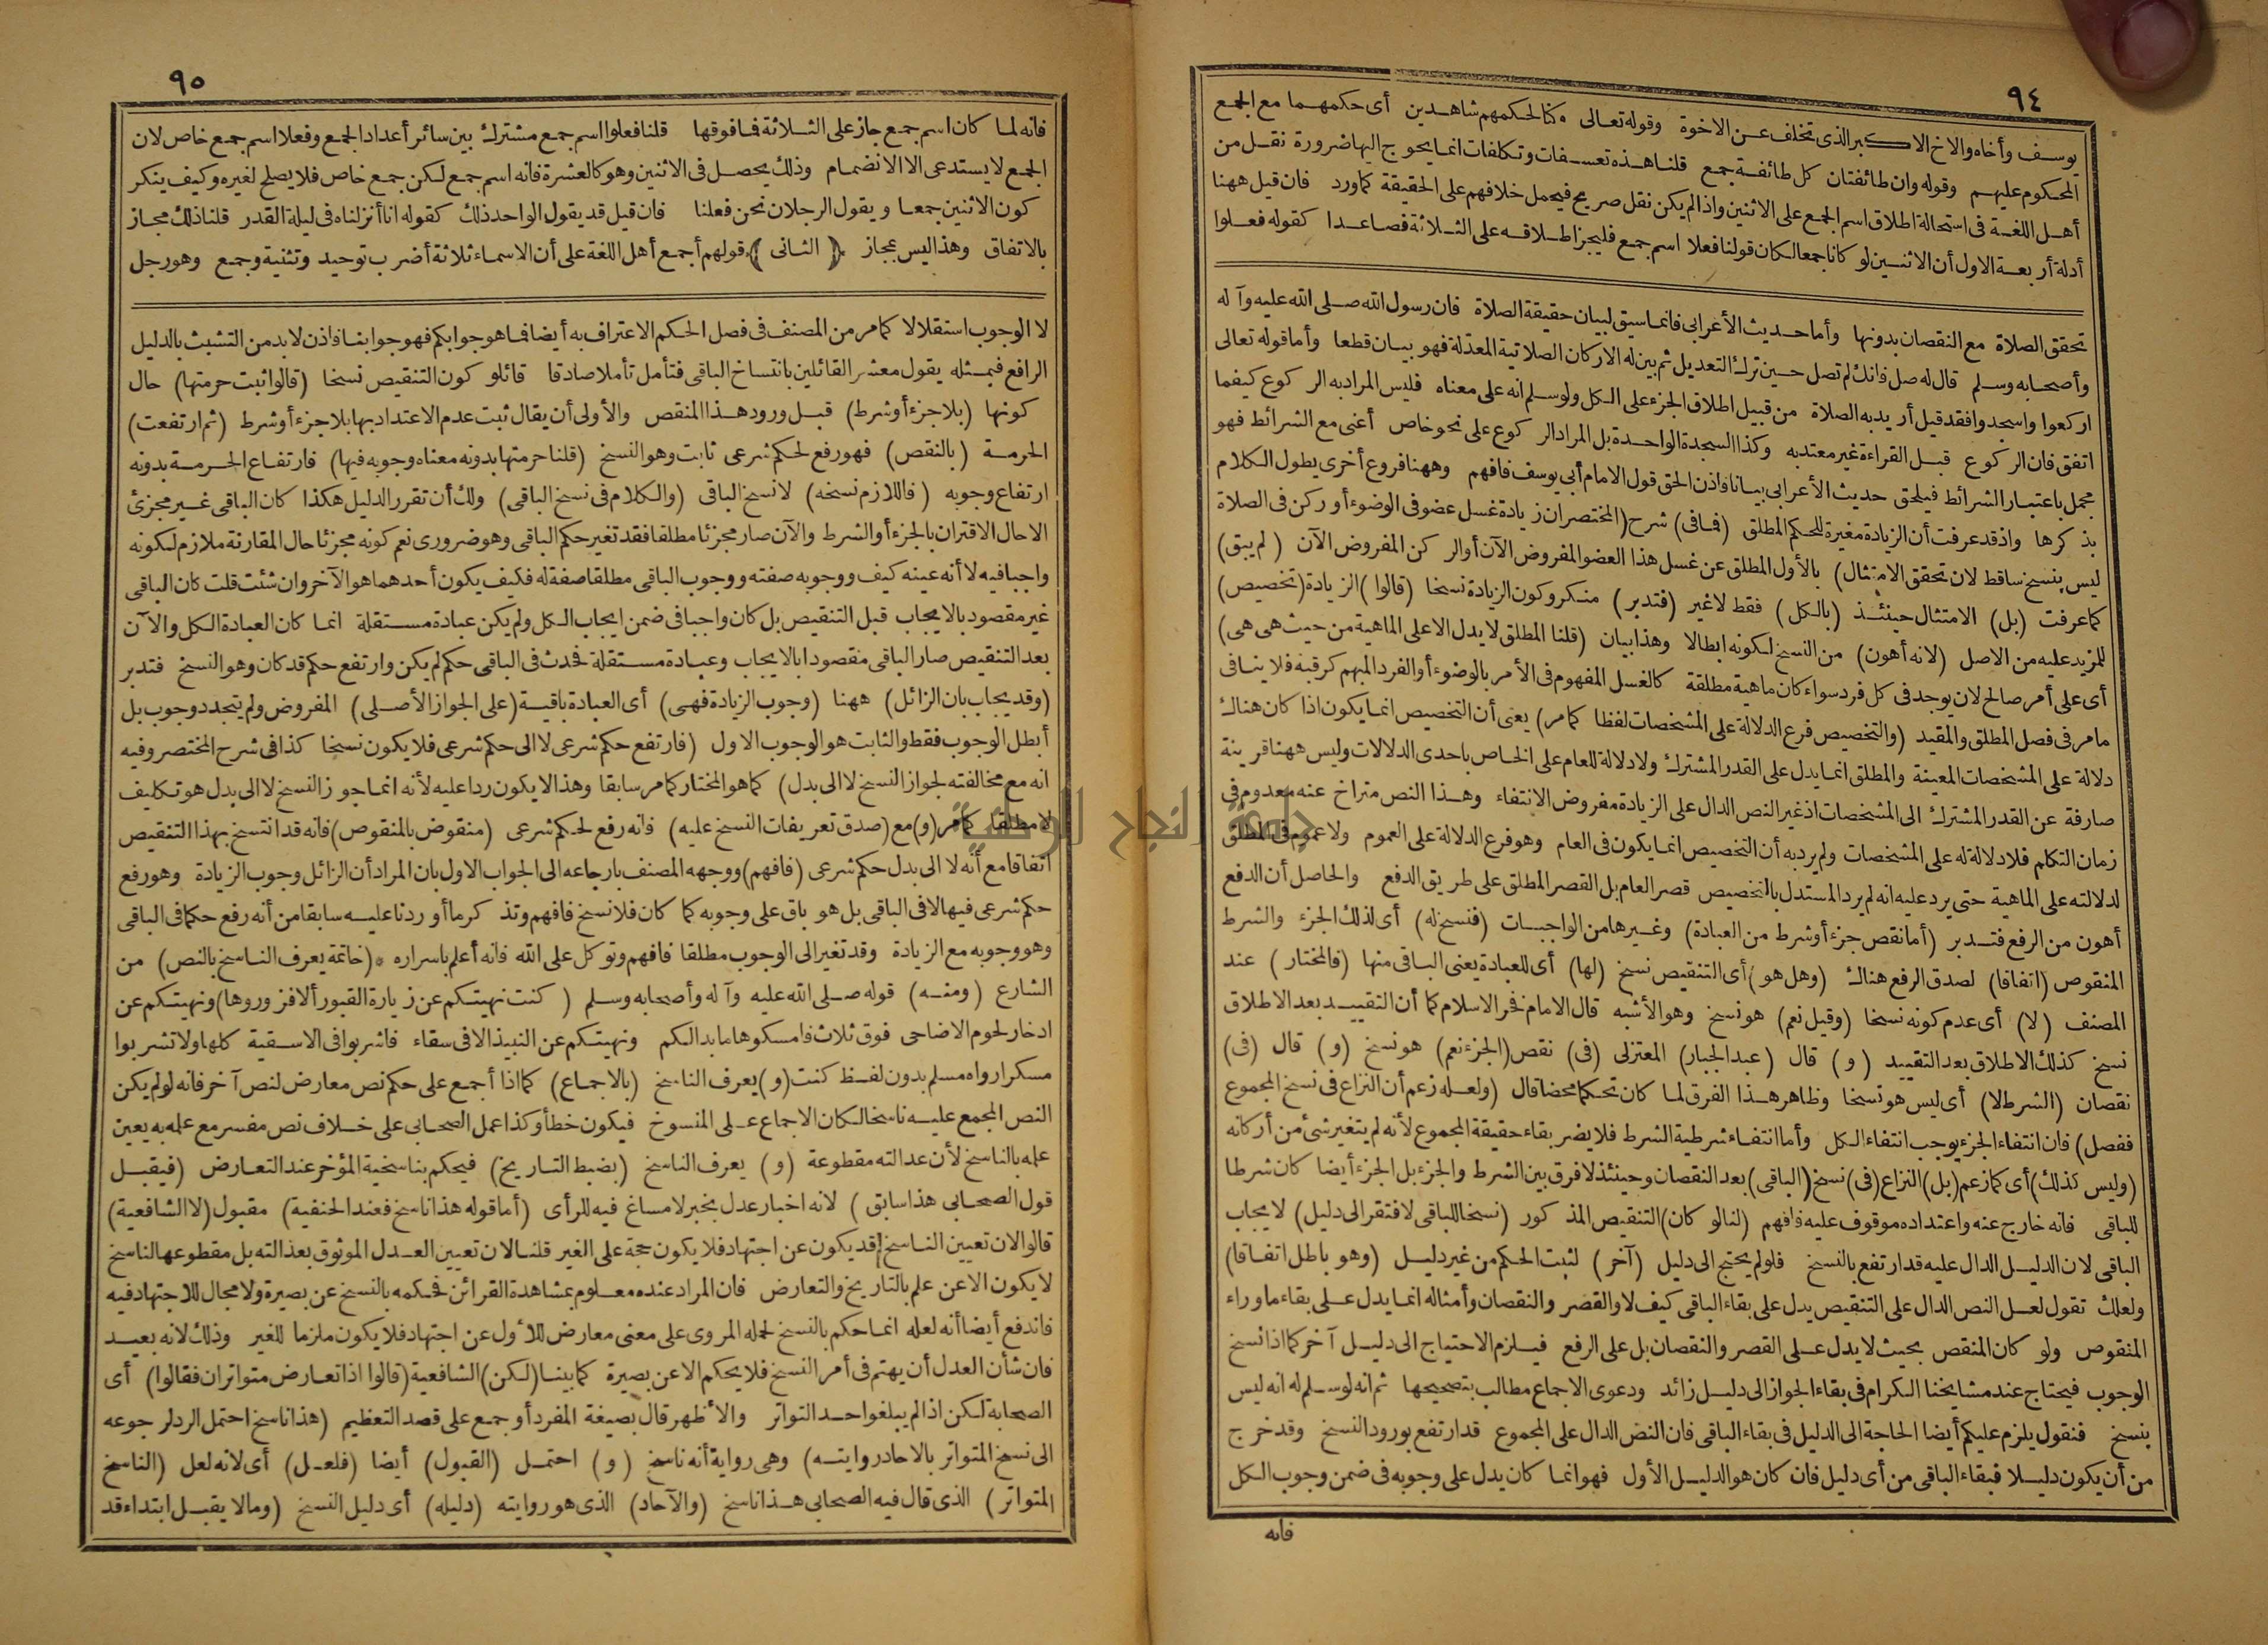 ٩٤
يوسف وأخاه والاخ الاكبر الذى تخلف عن الاخوة وقوله تعالى وكنا لحكمهم شاهدين أى حكمهما مع الجمع
المحكوم عليهم وقوله وان طائفتان كل طائفة جمع قلنا هذه تعسفات وتكلفات انما يحوج اليها ضرورة نقل من
أهل اللغة فى استحالة اطلاق اسم الجمع على الاثنين واذا لم يكن نقل صريح فيحمل خلافهم على الحقيقة كما ورد فان قيل ههنا
أدلة أربعة الاول أن الاثنين لو كانا جمعا لكان قولنا فعلا اسم جمع فليجز اطلاقه على الثلاثة فصاعدا كقوله فعلوا
تحقق الصلاة مع النقصان بدونها وأما حديث الأعرابى فانما سيق لبيان حقيقة الصلاة فان رسول الله صلى الله عليه وآله
وأصحابه وسلم قال له صل فانك لم تصل حين ترك التعديل ثم بين له الاركان الصلاتية المعدلة فهو بيان قطعا وأما قوله تعالى
اركعوا واسجدوا فقد قيل أريد به الصلاة من قبيل اطلاق الجزء على الكل ولو سلم انه على معناه فليس المراد به الركوع كيفما
اتفق فان الركوع قبل القراءة غير معتد به وكذا السجدة الواحدة بل المراد الركوع على نحو خاص أعنى مع الشرائط فهو
مجمل باعتبار الشرائط فيلحق حديث الأعرابى بيانا فاذن الحق قول الامام أبى يوسف فافهم وههنا فروع أخرى يطول الكلام
بذكرها واذ قد عرفت أن الزيادة مغيرة للحكم المطلق (فما فى) شرح (المختصر ان زيادة غسل عضو فى الوضوء أو ركن فى الصلاة
ليس بنسخ ساقط لان تحقق الامتثال) بالأول المطلق عن غسل هذا العضو المفروض الآن أو الركن المفروض الآن (لم يبق)
كما عرفت (بل) الامتثال حينئذ (بالكل) فقط لا غير (فتدبر) منكرو كون الزيادة نسخا (قالوا) الزيادة (تخصيص)
للمزيد عليه من الاصل (لانه أهون) من النسخ لكونه ابطالا وهذا بيان (قلنا المطلق لا يدل الا على الماهية من حيث هى هى)
أى على أمر صالح لان يوجد فى كل فرد سواء كان ماهية مطلقة كالغسل المفهوم فى الأمر بالوضوء أو الفرد المبهم كرقبة فلا ينافى
ما مر فى فصل المطلق والمقيد (والتخصيص فرع الدلالة على المشخصات لفظا كما مر) يعنى أن التخصيص انما يكون اذا كان هناك
دلالة على المشخصات المعينة والمطلق انما يدل على القدر المشترك ولا دلالة للعام على الخاص باحدى الدلالات وليس ههنا قرينة
صارفة عن القدر المشترك الى المشخصات اذ غير النص الدال على الزيادة مفروض الانتفاء وهذا النص متراخ عنه معدوم فى
زمان التكلم فلا دلالة له على المشخصات ولم يرد به أن التخصيص انما يكون فى العام وهو فرع الدلالة على العموم ولا عموم فى المطلق
لدلالته على الماهية حتى يرد عليه انه لم يرد المستدل بالتخصيص قصر العام بل القصر المطلق على طريق الدفع والحاصل أن الدفع
أهون من الرفع فتدبر (أما نقص جزء أو شرط من العبادة) وغيرها من الواجبات (فنسخ له) أى لذلك الجزء والشرط
المنقوص (اتفاقا) لصدق الرفع هناك (وهل هو) أى التنقيص نسخ (لها) أى للعبادة يعنى الباقى منها (فالمختار) عند
المصنف (لا) أى عدم كونه نسخا (وقيل نعم) هو نسخ وهو الأشبه قال الامام فخر الاسلام كما أن التقييد بعد الاطلاق
نسخ كذلك الاطلاق بعد التقييد (و) قال (عبد الجبار) المعتزلى (فى) نقص (الجزء نعم) هو نسخ (و) قال (فى)
نقصان (الشرط لا) أى ليس هو نسخا وظاهر هذا الفرق لما كان تحكما محضا قال (ولعله زعم أن النزاع فى نسخ المجموع
ففصل) فان انتفاء الجزء يوجب انتفاء الكل وأما انتفاء شرطية الشرط فلا يضر بقاء حقيقة المجموع لأنه لم يتغير شئ من أركانه
(وليس كذلك) أى كما زعم (بل) النزاع (فى) نسخ (الباقى) بعد النقصان وحينئذ لا فرق بين الشرط والجزء بل الجزء أيضا كان شرطا
للباقى فانه خارج عنه واعتداده موقوف عليه فافهم (لنا لو كان) التنقيص المذكور (نسخا للباقى لافتقر الى دليل) لايجاب
الباقى لان الدليل الدال عليه قد ارتفع بالنسخ فلو لم يحتج الى دليل (آخر) لثبت الحكم من غير دليل (وهو باطل اتفاقا)
ولعلك تقول لعل النص الدال على التنقيص يدل على بقاء الباقى كيف لا والقصر والنقصان وأمثاله انما يدل على بقاء ما وراء
المنقوص ولو كان المنقص بحيث لا يدل على القصر والنقصان بل على الرفع فيلزم الاحتياج الى دليل آخر كما اذا نسخ
الوجوب فيحتاج عند مشايخنا الكرام فى بقاء الجواز الى دليل زائد ودعوى الاجماع مطالب بتصحيحها ثم انه لو سلم له انه ليس
بنسخ فنقول يلزم عليكم أيضا الحاجة الى الدليل فى بقاء الباقى فان النص الدال على المجموع قد ارتفع بورود النسخ وقد خرج
من أن يكون دليلا فبقاء الباقى من أى دليل فان كان هو الدليل الأول فهو انما كان يدل على وجوبه فى ضمن وجوب الكل
فانه
٩٥
فانه لما كان اسم جمع جاز على الثلاثة فما فوقها قلنا فعلوا اسم جمع مشترك بين سائر أعداد الجمع وفعلا اسم جمع خاص لان
الجمع لا يستدعى الا الانضمام وذلك يحصل فى الاثنين وهو كالعشرة فانه اسم جمع لكن جمع خاص فلا يصلح لغيره وكيف ينكر
كون الاثنين جمعا ويقول الرجلان نحن فعلنا فان قيل قد يقول الواحد ذلك كقوله انا أنزلناه فى ليلة القدر قلنا ذلك مجاز
بالاتفاق وهذا ليس بمجاز (الثانى) قولهم أجمع أهل اللغة على أن الاسماء ثلاثة أضرب توحيد وتثنية وجمع وهو رجل
لا الوجوب استقلالا كما مر من المصنف فى فصل الحكم الاعتراف به أيضا فما هو جوابكم فهو جوابنا فاذن لا بد من التشبث بالدليل
الرافع فبمثله يقول معشر القائلين بانتساخ الباقى فتأمل تأملا صادقا قائلو كون التنقيص نسخا (قالوا ثبت حرمتها) حال
كونها (بلا جزء أو شرط) قبل ورود هذا المنقص والأولى أن يقال ثبت عدم الاعتداد بها بلا جزء أو شرط (ثم ارتفعت)
الحرمة (بالنقص) فهو رفع لحكم شرعى ثابت وهو النسخ (قلنا حرمتها بدونه معناه وجوبه فيها) فارتفاع الحرمة بدونه
ارتفاع وجوبه (فاللازم نسخه) لا نسخ الباقى (والكلام فى نسخ الباقى) ولك أن تقرر الدليل هكذا كان الباقى غير مجزئ
الا حال الاقتران بالجزء أو الشرط والآن صار مجزئا مطلقا فقد تغير حكم الباقى وهو ضرورى نعم كونه مجزئا حال المقارنة ملازم لكونه
واجبا فيه لا أنه عينه كيف ووجوبه صفته ووجوب الباقى مطلقا صفة له فكيف يكون أحدهما هو الآخر وان شئت قلت كان الباقى
غير مقصود بالايجاب قبل التنقيص بل كان واجبا فى ضمن ايجاب الكل ولم يكن عبادة مستقلة انما كان العبادة الكل والآن
بعد التنقيص صار الباقى مقصودا بالايجاب وعبادة مستقلة فحدث فى الباقى حكم لم يكن وارتفع حكم قد كان وهو النسخ فتدبر
(وقد يجاب بان الزائل) ههنا (وجوب الزيادة فهى) أى العبادة باقية (على الجواز الأصلى) المفروض ولم يتجدد وجوب بل
أبطل الوجوب فقط والثابت هو الوجوب الاول (فارتفع حكم شرعى لا الى حكم شرعى فلا يكون نسخا كذا فى شرح المختصر وفيه
انه مع مخالفته لجواز النسخ لا الى بدل) كما هو المختار كما مر سابقا وهذا لا يكون ردا عليه لأنه انما جوز النسخ لا الى بدل هو تكليف
لا مطلقا كما مر (و) مع (صدق تعريفات النسخ عليه) فانه رفع لحكم شرعى (منقوض بالمنقوص) فانه قد انتسخ بهذا التنقيص
اتفاقا مع أنه لا الى بدل حكم شرعى (فافهم) ووجهه المصنف بارجاعه الى الجواب الاول بان المراد أن الزائل وجوب الزيادة وهو رفع
حكم شرعى فيها لا فى الباقى بل هو باق على وجوبه كما كان فلا نسخ فافهم وتذكر ما أوردنا عليه سابقا من أنه رفع حكما فى الباقى
وهو وجوبه مع الزيادة وقد تغير الى الوجوب مطلقا فافهم وتوكل على الله فانه أعلم باسراره * (خاتمة يعرف الناسخ بالنص) من
الشارع (ومنه) قوله صلى الله عليه وآله وأصحابه وسلم (كنت نهيتكم عن زيارة القبور ألا فزوروها) ونهيتكم عن
ادخار لحوم الاضاحى فوق ثلاث فامسكوها ما بدا لكم ونهيتكم عن النبيذ الا فى سقاء فاشربوا فى الاسقية كلها ولا تشربوا
مسكرا رواه مسلم بدون لفظ كنت (و) يعرف الناسخ (بالاجماع) كما اذا أجمع على حكم نص معارض لنص آخر فانه لو لم يكن
النص المجمع عليه ناسخا لكان الاجماع على المنسوخ فيكون خطأ وكذا عمل الصحابى على خلاف نص مفسر مع علمه به يعين
علمه بالناسخ لأن عدالته مقطوعة (و) يعرف الناسخ (بضبط التاريخ) فيحكم بناسخية المؤخر عند التعارض (فيقبل
قول الصحابى هذا سابق) لانه اخبار عدل بخبر لا مساغ فيه للرأى (أما قوله هذا ناسخ فعند الحنفية) مقبول (لا الشافعية)
قالوا لان تعيين الناسخ قد يكون عن اجتهاد فلا يكون حجة على الغير قلنا لا لان تعيين العدل الموثوق بعدالته بل مقطوعها الناسخ
لا يكون الا عن علم بالتاريخ والتعارض فان المراد عنده معلوم بمشاهدة القرائن فحكمه بالنسخ عن بصيرة ولا مجال للاجتهاد فيه
فاندفع أيضا أنه لعله انما حكم بالنسخ لحمله المروى على معنى معارض للأول عن اجتهاد فلا يكون ملزما للغير وذلك لانه بعيد
فان شأن العدل أن يهتم فى أمر النسخ فلا يحكم الا عن بصيرة كما بينا (لكن) الشافعية (قالوا اذا تعارض متواتران فقالوا) أى
الصحابة لكن اذا لم يبلغوا حد التواتر والأظهر قال بصيغة المفرد أو جمع على قصد التعظيم (هذا ناسخ احتمل الرد لرجوعه
الى نسخ المتواتر بالاحاد روايته) وهى رواية أنه ناسخ (و) احتمل (القبول) أيضا (فلعل) أى لانه لعل (الناسخ
المتواتر) الذى قال فيه الصحابى هذا ناسخ (والآحاد) الذى هو روايته (دليله) أى دليل النسخ (وما لا يقبل ابتداء قد
جامعة النجاح الوطنية